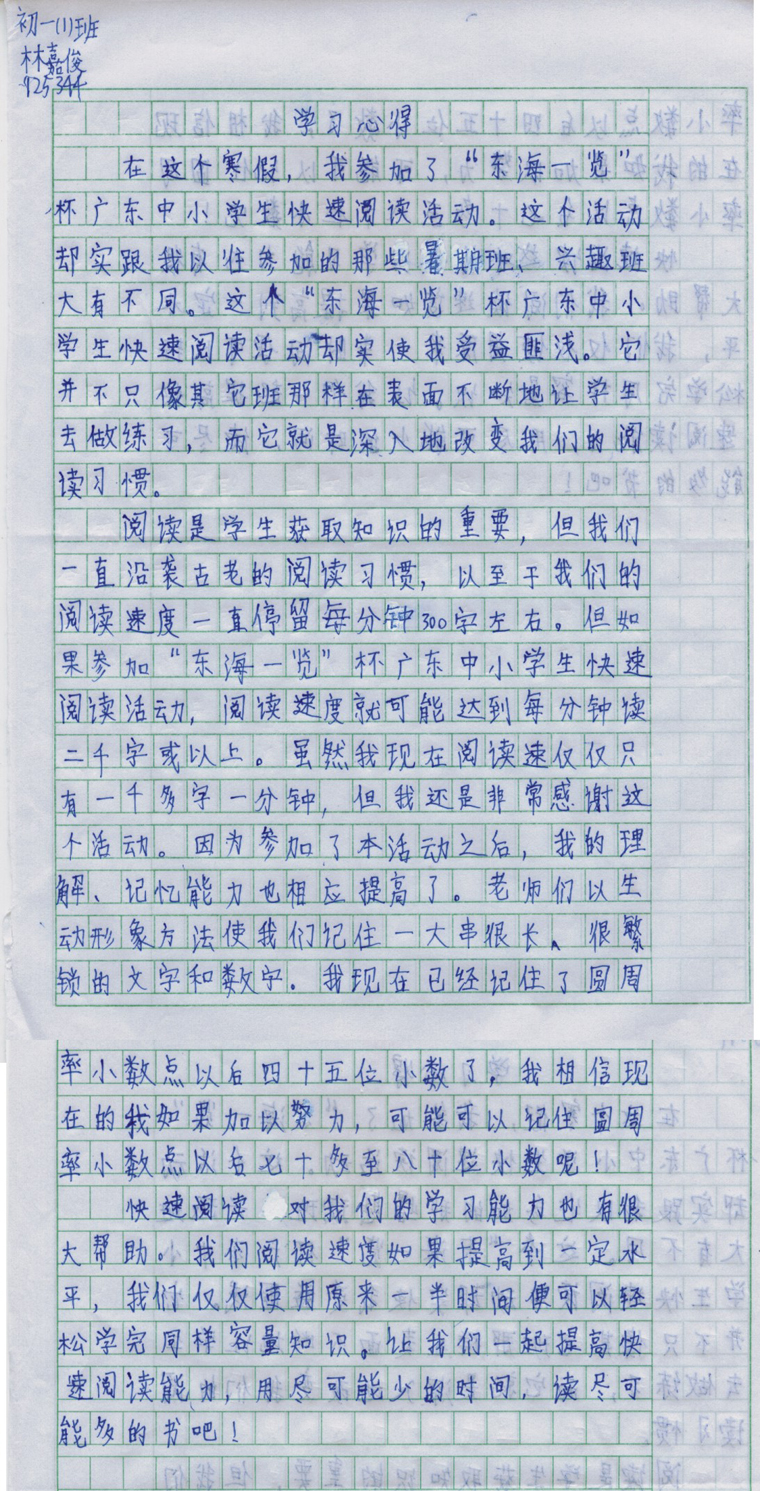 初一(1)班
林嘉俊
925344
学习心得
在这个寒假，我参加了“东海一览”
杯广东中小学生快速阅读活动。这个活动
却实跟我以往参加的那些暑期班、兴趣班
大有不同。这个“东海一览”杯广东中小
学生快速阅读活动却实使我受益匪浅。它
并不只像其它班那样在表面不断地让学生
去做练习，而它就是深入地改变我们的阅
读习惯。
阅读是学生获取知识的重要，但我们
一直沿袭古老的阅读习惯，以至于我们的
阅读速度一直停留每分钟300字左右。但如
果参加“东海一览”杯广东中小学生快速
阅读活动，阅读速度就可能达到每分钟读
二千字或以上。虽然我现在阅读速仅仅只
有一千多字一分钟，但我还是非常感谢这
个活动。因为参加了本活动之后，我的理
解、记忆能力也相应提高了。老师们以生
动形象方法使我们记住一大串很长、很繁
锁的文字和数字．我现在已经记住了圆周
率小数点以后四十五位小数了，我相信现
在的我如果加以努力，可能可以记住圆周
率小数点以后七十多至八十位小数呢！
快速阅读对我们的学习能力也有很
大帮助。我们阅读速度如果提高到一定水
平，我们仅仅使用原来一半时间便可以轻
松学完同样容量知识。让我们一起提高快
速阅读能力，用尽可能少的时间，读尽可
能多的书吧！